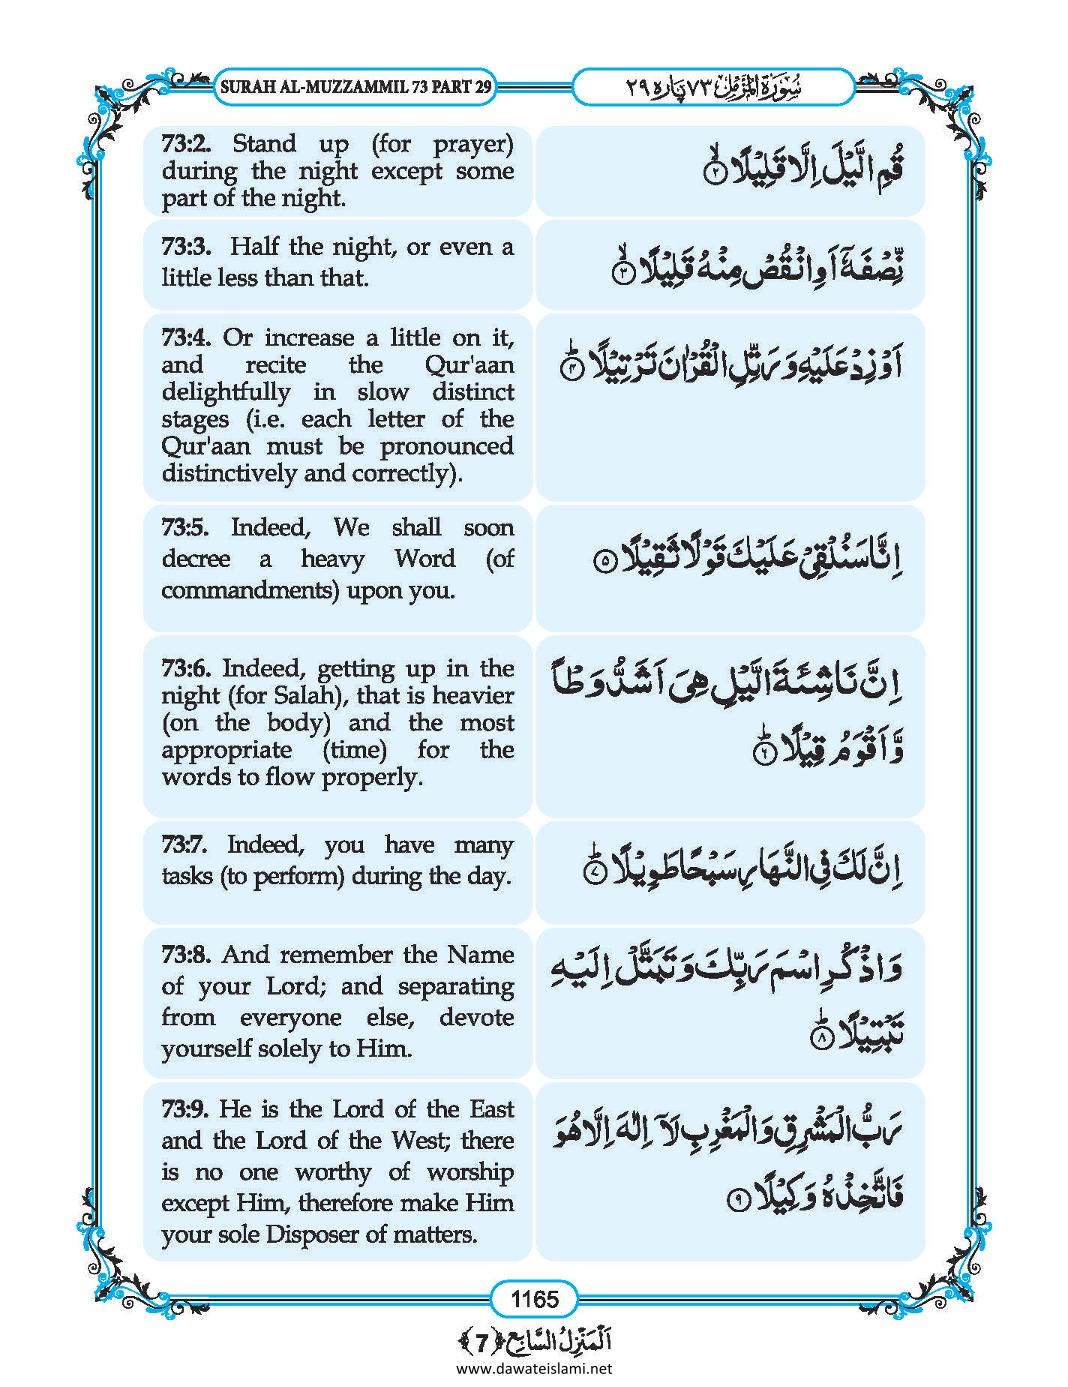 SURAH AL-MUZZAMMIL 73 PART 29
سُوْرَةُ الْمُزَّمِّل ٧٣ پارہ ٢٩
73:2. Stand up (for prayer)
during the night except some
part of the night.
قُمِ الَّيْلَ اِلَّا قَلِيْلًا ۙ﴿۲﴾
73:3. Half the night, or even a
little less than that.
نِّصْفَهٗۤ اَوِ انْقُصْ مِنْهُ قَلِيْلًا ۙ﴿۳﴾
73:4. Or increase a little on it,
and recite the Qur'aan
delightfully in slow distinct
stages (i.e. each letter of the
Qur'aan must be pronounced
distinctively and correctly).
اَوْ زِدْ عَلَيْهِ وَ رَتِّلِ الْقُرْاٰنَ تَرْتِيْلًا ؕ﴿۴﴾
73:5. Indeed, We shall soon
decree a heavy Word (of
commandments) upon you.
اِنَّا سَنُلْقِيْ عَلَيْكَ قَوْلًا ثَقِيْلًا ﴿۵﴾
73:6. Indeed, getting up in the
night (for Salah), that is heavier
(on the body) and the most
appropriate (time) for the
words to flow properly.
اِنَّ نَاشِئَةَ الَّيْلِ هِيَ اَشَدُّ وَطْاً
وَّ اَقْوَمُ قِيْلًا ؕ﴿۶﴾
73:7. Indeed, you have many
tasks (to perform) during the day.
اِنَّ لَكَ فِي النَّهَارِ سَبْحًا طَوِيْلًا ؕ﴿۷﴾
73:8. And remember the Name
of your Lord; and separating
from everyone else, devote
yourself solely to Him.
وَ اذْكُرِ اسْمَ رَبِّكَ وَ تَبَتَّلْ اِلَيْهِ
تَبْتِيْلًا ؕ﴿۸﴾
73:9. He is the Lord of the East
and the Lord of the West; there
is no one worthy of worship
except Him, therefore make Him
your sole Disposer of matters.
رَبُّ الْمَشْرِقِ وَ الْمَغْرِبِ لَاۤ اِلٰهَ اِلَّا هُوَ
فَاتَّخِذْهُ وَكِيْلًا ﴿۹﴾
1165
اَلْمَنْزِلُ السَّابِع ﴿7﴾
www.dawateislami.net